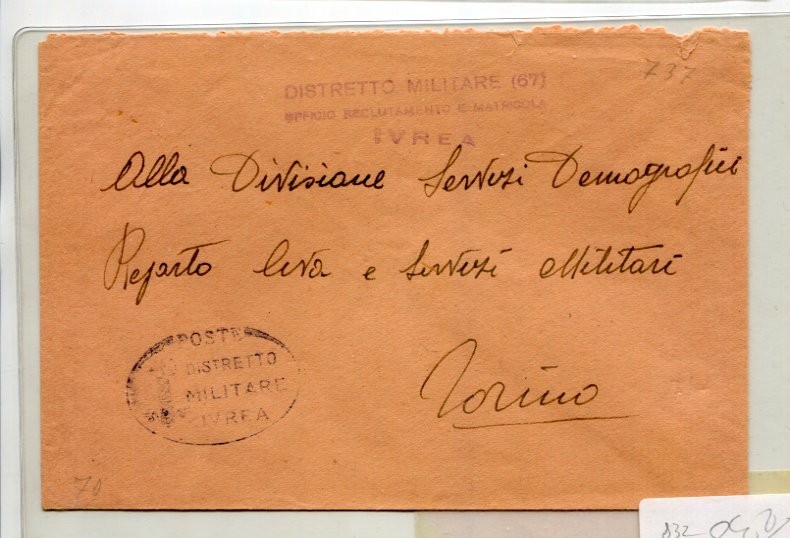 737
DISTRETTO MILITARE (67)
UFFICIO RECLUTAMENTO E MATRICOLA
IVREA
Alla Divisione Servizi Demografici
Reparto Leva e Servizi Militari
Torino
POSTE
DISTRETTO
MILITARE
IVREA
70
832